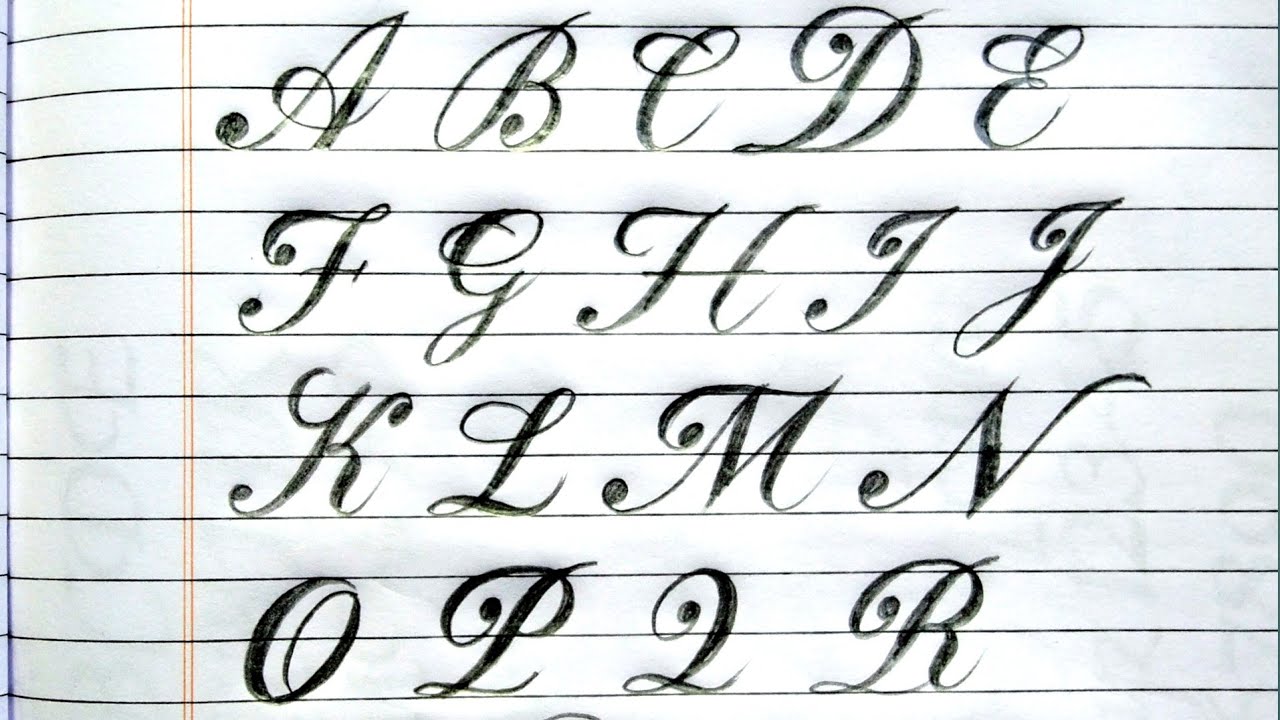 A B C D E
F G H I J
K L M N
O P Q R